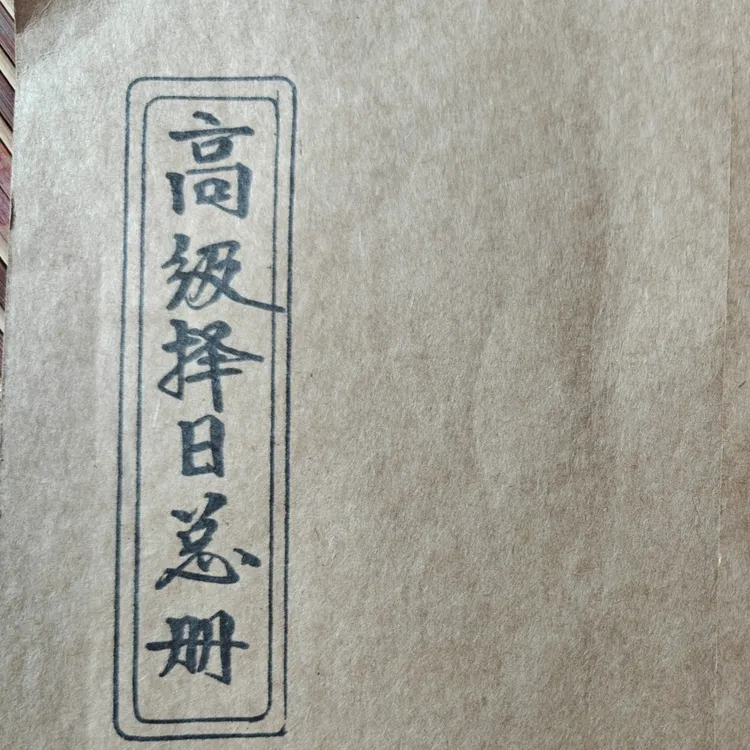 高级择日总册